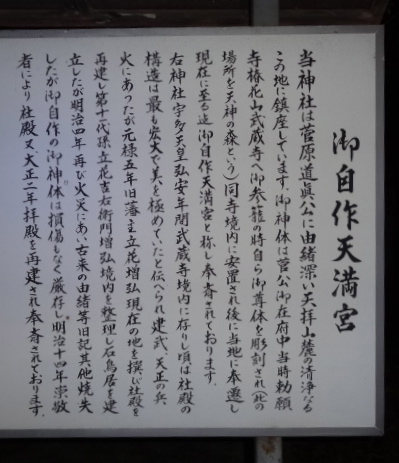 御自作天満宮
当神社は菅原道真公に由緒深い天拝山麓の清浄なる
この地に鎮座しています。御神体は菅公御在府中当時勅願
寺椿花山武蔵寺へ御参籠の時自ら御尊体を彫刻され(此の
場所を天神の森という)同寺境内に安置され後に当地に奉遷し
現在に至る迄御自作天満宮と称し奉斎されております。
右神社宇多天皇弘安年間武蔵寺境内に存りし頃は社殿の
構造は最も宏大で美を極めていたと伝へられ建武、天正の兵
火にあったが元禄五年旧藩主立花増弘現在の地を撰び社殿を
再建し第十代孫立花吉右衛門増弘境内を整理し石鳥居を建
立したが明治四年再び火災にあい古来の由緒等旧記其他焼失
したが御自作の御神体は損傷もなく厳存し明治十四年崇敬
者により社殿又大正二年拝殿を再建され奉斎されております。